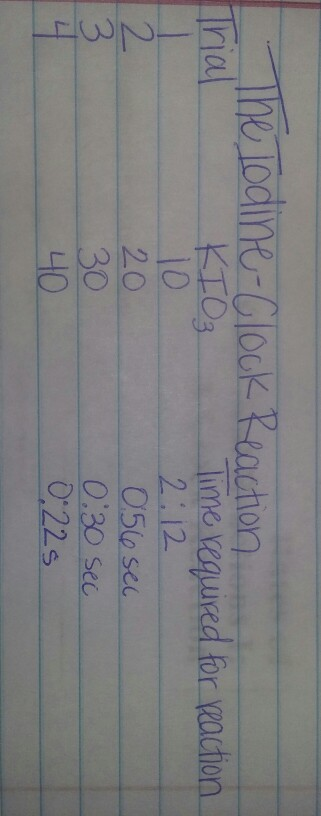 The Iodine-Clock Reaction
Trial KIO₃ Time required for reaction
1 10 2:12
2 20 0:56 sec
3 30 0:30 sec
4 40 0:22 s